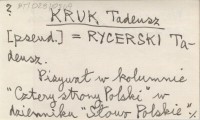 ?
KRUK Tadeusz
[pseud.] = RYCERSKI Ta-
deusz.
Pisywał w kolumnie
"Cztery strony Polski" w
dzienniku "Słowo Polskie" %